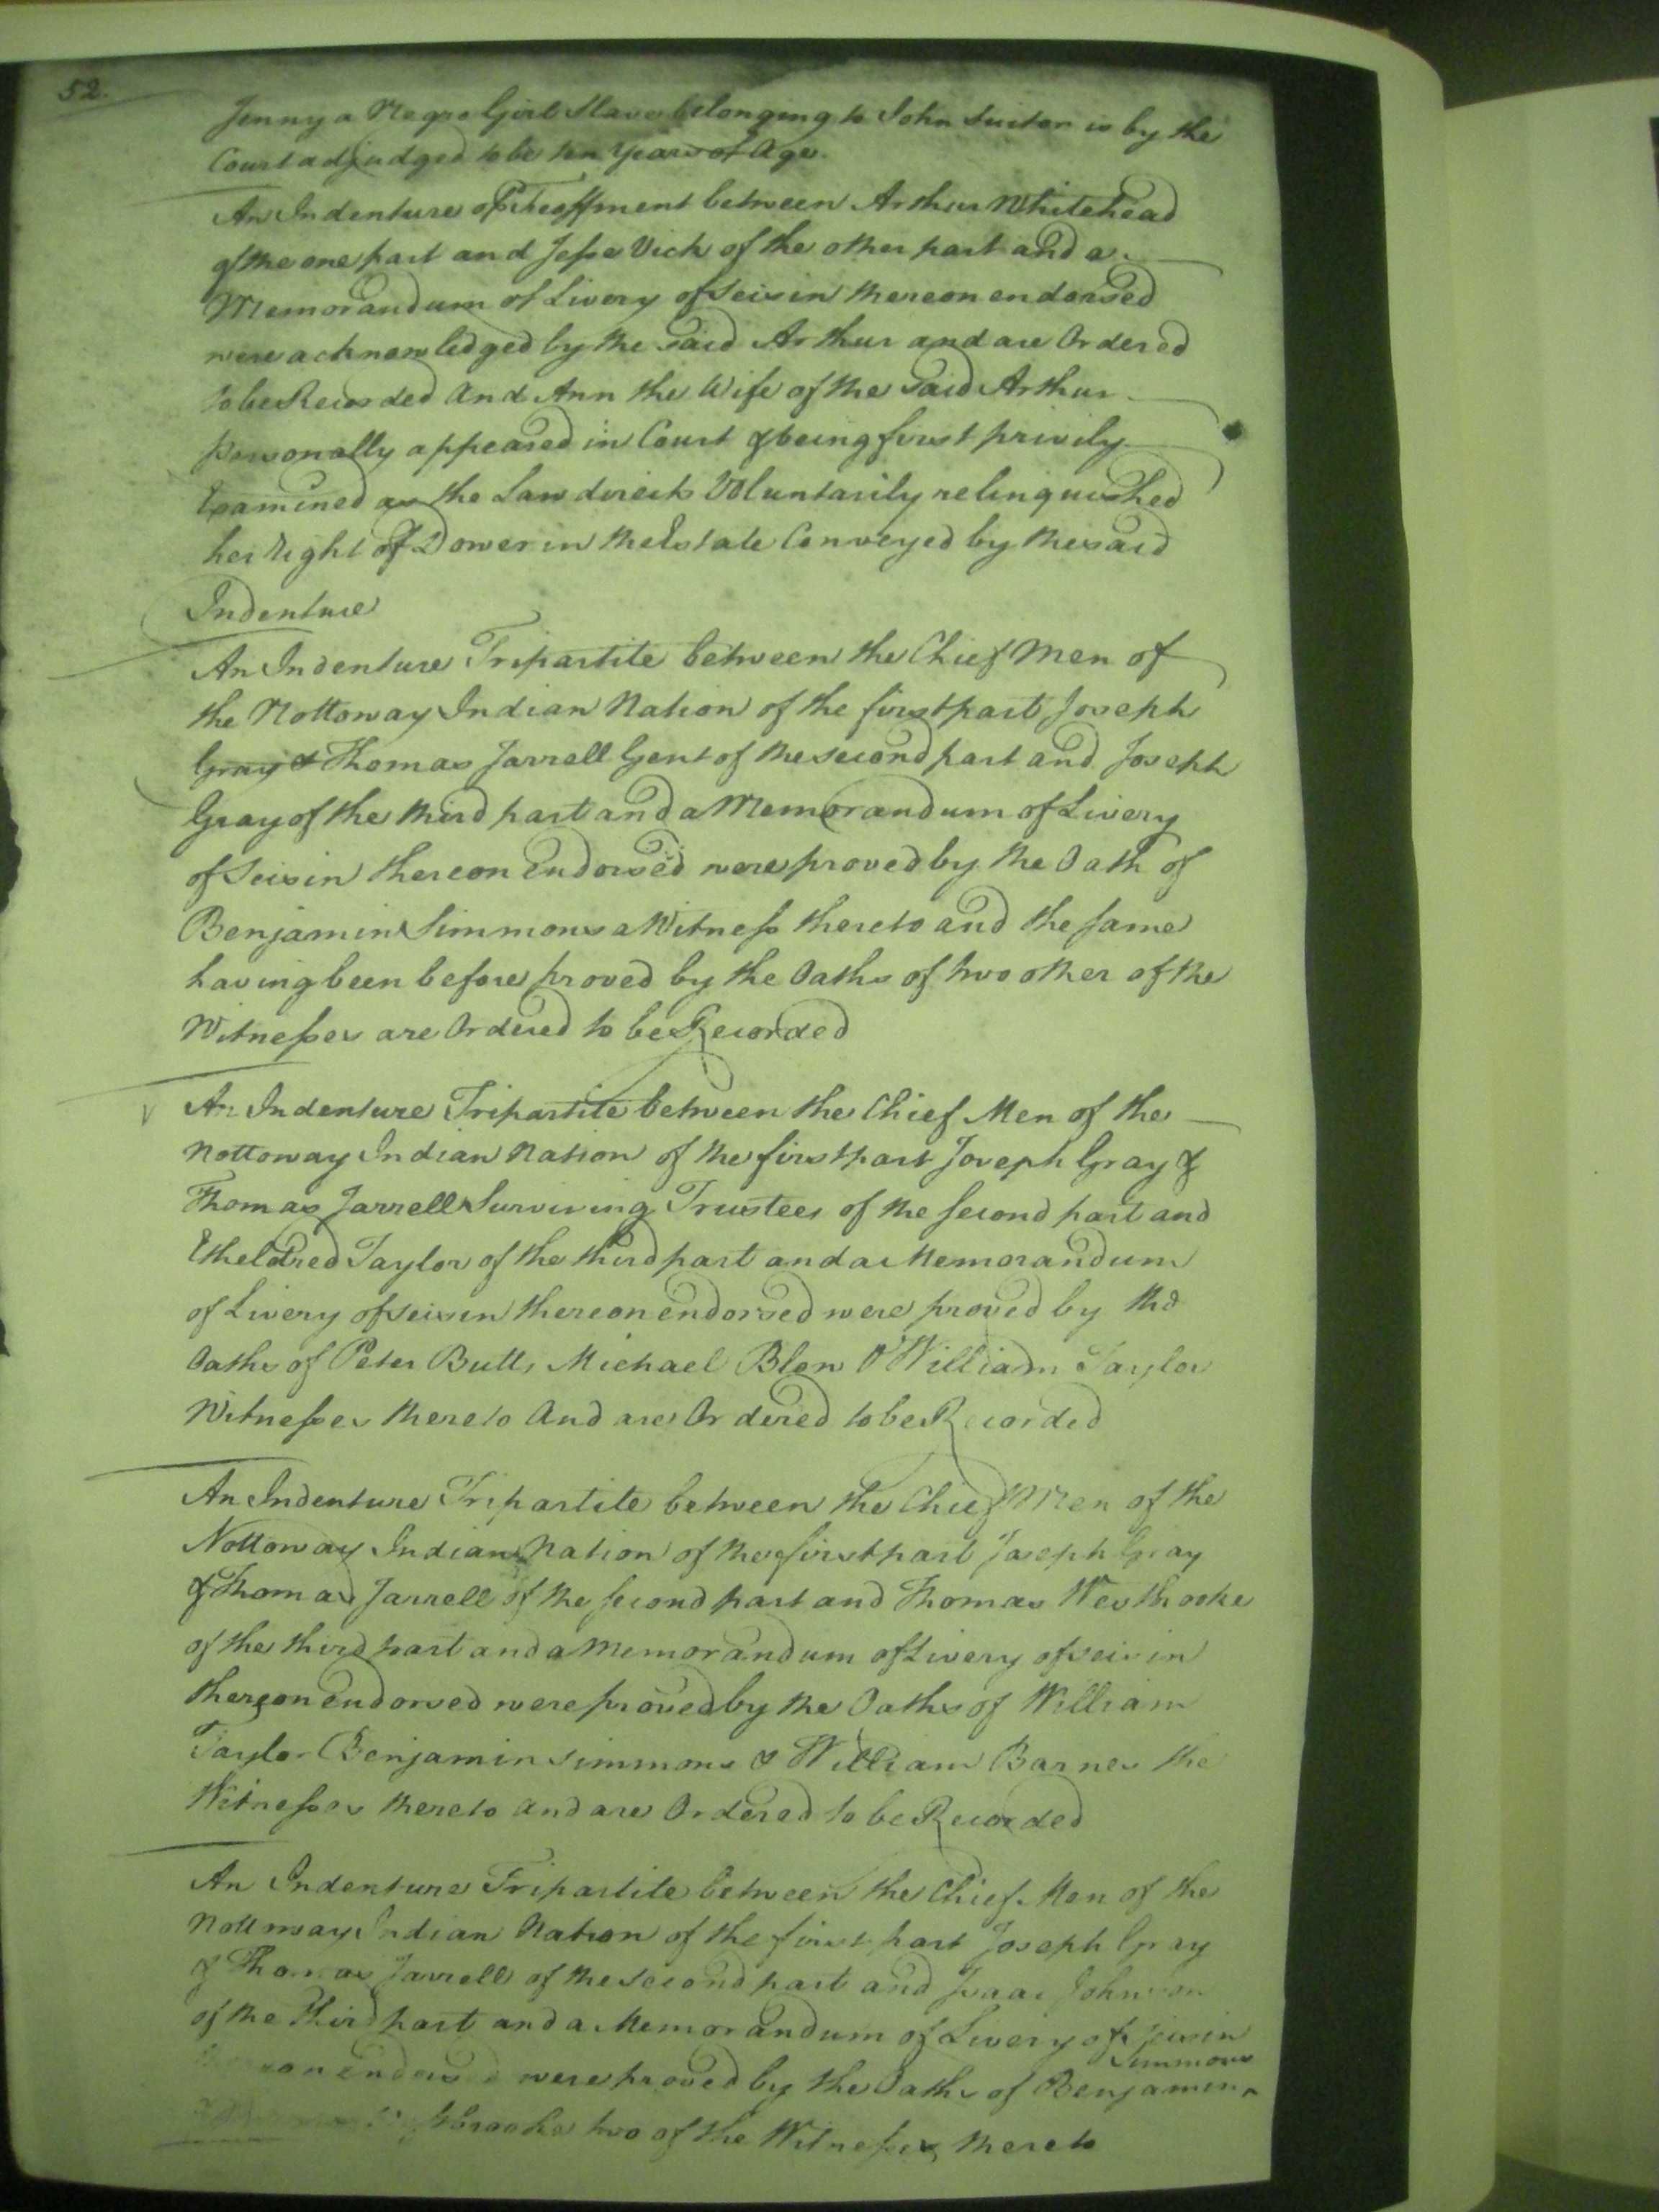 52.
Jenny a Negro Girl Slave belonging to John Suiter is by the
Court adjudged to be ten Years of Age.
An Indenture of Feoffment between Arthur Whitehead
of the one part and Jesse Vick of the other part and a
Memorandum of Livery of Seisin thereon endorsed
were acknowledged by the said Arthur and are Ordered
to be Recorded And Ann the Wife of the said Arthur
personally appeared in Court & being first privily
Examined as the Law directs Voluntarily relinquished
her Right of Dower in the Estate Conveyed by the said
Indenture
An Indenture Tripartite between the Chief Men of
the Nottoway Indian Nation of the first part Joseph
Gray & Thomas Jarrell Gent of the second part and Joseph
Gray of the third part and a Memorandum of Livery
of Seisin thereon Endorsed were proved by the Oath of
Benjamin Simmons a Witness thereto and the same
having been before proved by the Oaths of two other of the
Witnesses are Ordered to be Recorded
An Indenture Tripartite between the Chief Men of the
Nottoway Indian Nation of the first part Joseph Gray &
Thomas Jarrell Surviving Trustees of the second part and
Etheldred Taylor of the third part and a Memorandum
of Livery of seisin thereon endorsed were proved by the
Oaths of Peter Butts Michael Blow & William Taylor
Witnesses thereto And are Ordered to be Recorded
An Indenture Tripartite between the Chief Men of the
Nottoway Indian Nation of the first part Joseph Gray
& Thomas Jarrell of the second part and Thomas Westbrooke
of the third part and a Memorandum of Livery of seisin
thereon Endorsed were proved by the Oaths of William
Taylor Benjamin Simmons & William Barnes the
Witnesses thereto and are Ordered to be Recorded
An Indenture Tripartite between the Chief Men of the
Nottoway Indian Nation of the first part Joseph Gray
& Thomas Jarrell of the second part and Isaac Johnson
of the third part and a Memorandum of Livery of seisin
Simmons
endorsed were proved by the Oaths of Benjamin ^
two of the Witnesses thereto